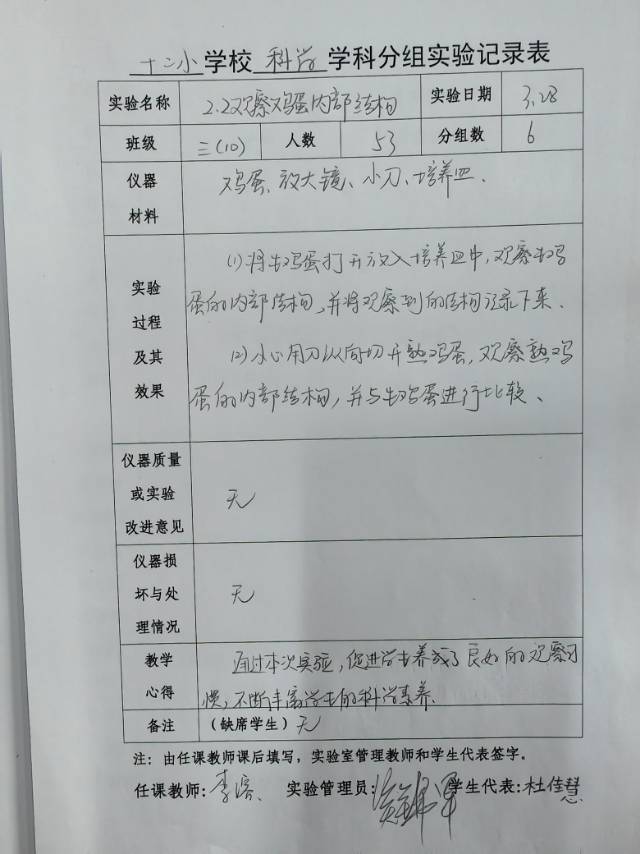 十二小学校 科学 学科分组实验记录表
实验名称 2.2观察鸡蛋内部结构 实验日期 3.28
班级 三(10) 人数 53 分组数 6
仪器材料 鸡蛋、放大镜、小刀、培养皿.
实验过程及其效果
(1)将生鸡蛋打开放入培养皿中,观察生鸡
蛋的内部结构,并将观察到的结构记录下来.
(2)小心用刀纵向切开熟鸡蛋,观察熟鸡
蛋的内部结构,并与生鸡蛋进行比较、
仪器质量或实验改进意见 无
仪器损坏与处理情况 无
教学心得
通过本次实验,促进学生养成了良好的观察习
惯,不断丰富学生的科学素养.
备注 (缺席学生)无
注:由任课教师课后填写,实验室管理教师和学生代表签字。
任课教师:李 实验管理员: 学生代表:杜佳慧